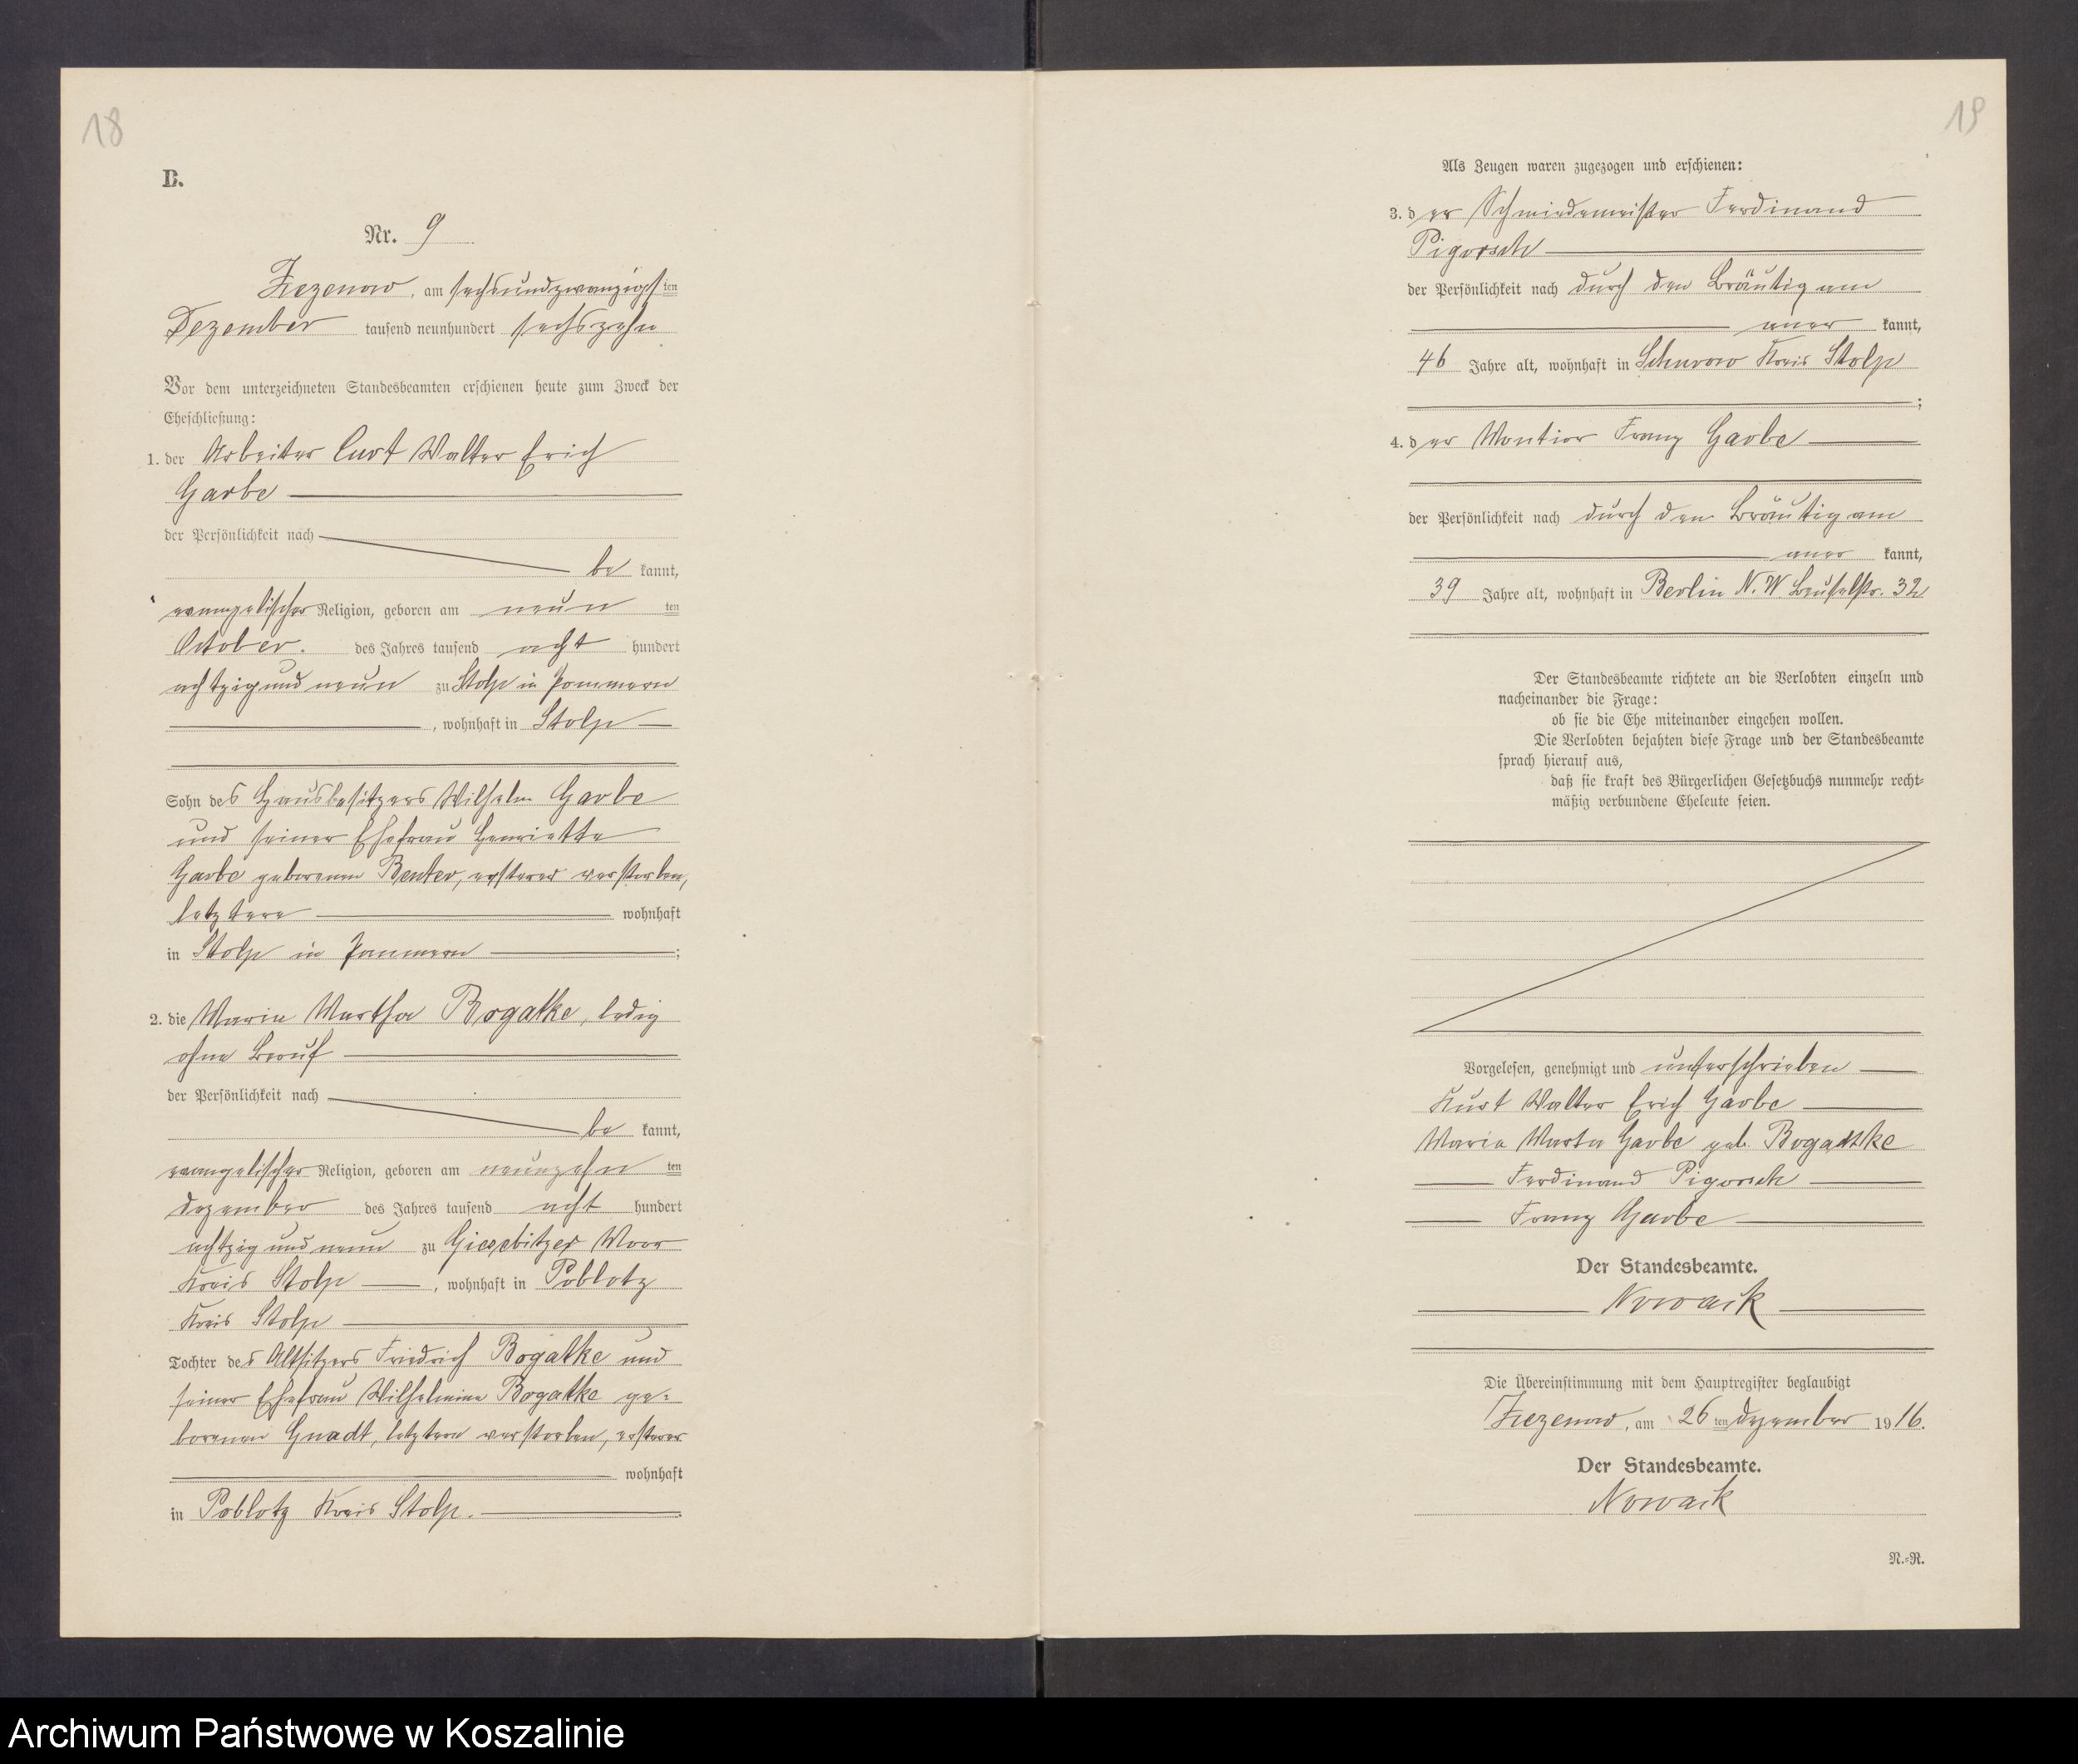 18
B.
Nr. 9
Zezenow, am sechsundzwanzigsten
Dezember tausend neunhundert sechszehn
Vor dem unterzeichneten Standesbeamten erschienen heute zum Zweck der
Eheschließung:
1. der Arbeiter Curt Walter Erich
Garbe
der Persönlichkeit nach
be kannt,
evangelischer Religion, geboren am neun ten
October. des Jahres tausend acht hundert
achtzig und neun zu Stolp in Pommern
, wohnhaft in Stolp
Sohn des Hausbesitzers Wilhelm Garbe
und seiner Ehefrau Henriette
Garbe geborenen Renter, ersterer verstorben,
letztere wohnhaft
in Stolp in Pommern ;
2. die Maria Martha Bogatke, ledig
ohne Beruf
der Persönlichkeit nach
be kannt,
evangelischer Religion, geboren am neunzehn ten
Dezember des Jahres tausend acht hundert
achtzig und neun zu Giesebitzer Moor
Kreis Stolp , wohnhaft in Poblotz
Kreis Stolp
Tochter des Altsitzers Friedrich Bogatke und
seiner Ehefrau Wilhelmine Bogatke ge-
borenen Gnadt, letztere verstorben, ersterer
wohnhaft
in Poblotz Kreis Stolp.
19
Als Zeugen waren zugezogen und erschienen:
3. der Schmiedemeister Ferdinand
Pigorsch
der Persönlichkeit nach durch den Bräutigam
aner kannt,
46 Jahre alt, wohnhaft in Schurow Kreis Stolp
;
4. der Montior Franz Garbe
der Persönlichkeit nach durch den Bräutigam
aner kannt,
39 Jahre alt, wohnhaft in Berlin N. W. Beusselstr. 32
Der Standesbeamte richtete an die Verlobten einzeln und
nacheinander die Frage:
ob sie die Ehe miteinander eingehen wollen.
Die Verlobten bejahten diese Frage und der Standesbeamte
sprach hierauf aus,
daß sie kraft des Bürgerlichen Gesetzbuchs nunmehr recht-
mäßig verbundene Eheleute seien.
Vorgelesen, genehmigt und unterschrieben
Kurt Walter Erich Garbe
Maria Marta Garbe geb. Bogattke
Ferdinand Pigorsch
Franz Garbe
Der Standesbeamte.
Nowack
Die Übereinstimmung mit dem Hauptregister beglaubigt
Zezenow, am 26 ten Dezember 1916.
Der Standesbeamte.
Nowack
N.-R.
Archiwum Państwowe w Koszalinie